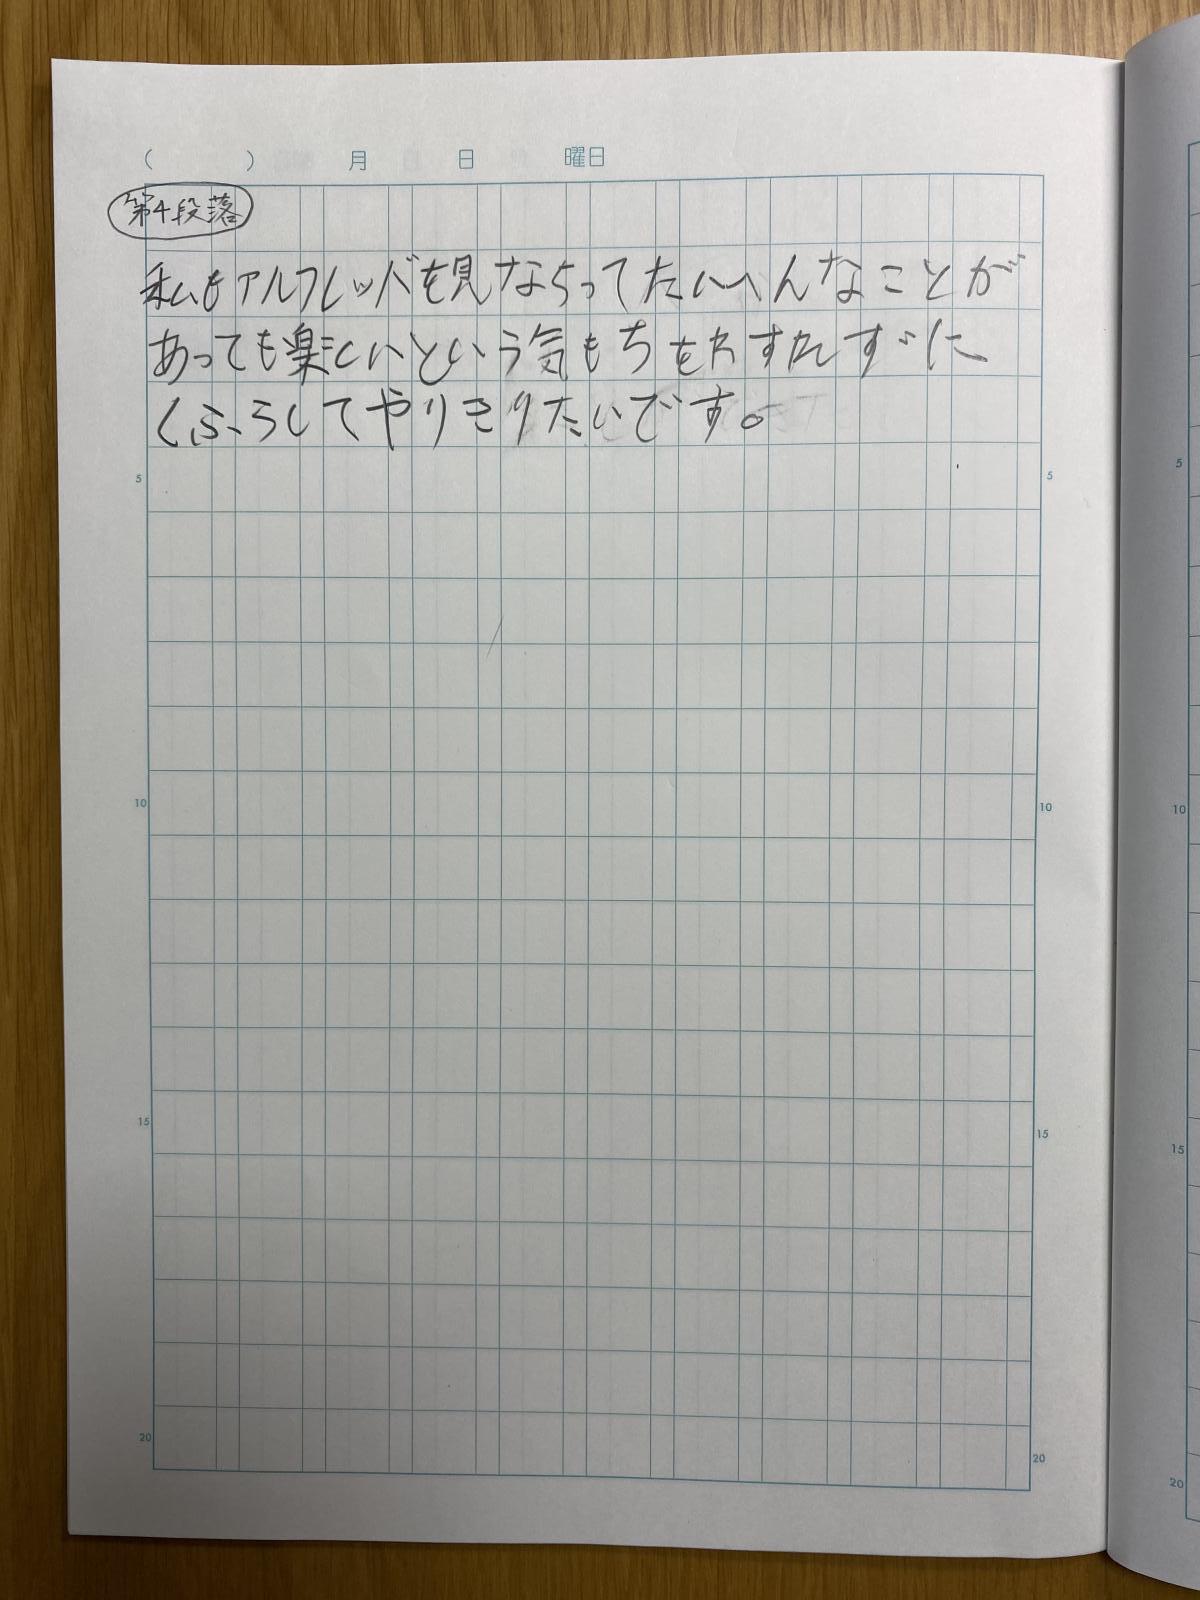 ( ) 月 日 曜日
第4段落
私もアルフレッドを見ならってたいへんなことが
あっても楽しいという気もちをわすれずに
くふうしてやりきりたいです。
5 5
5
10 10
10
15 15
15
20 20
20